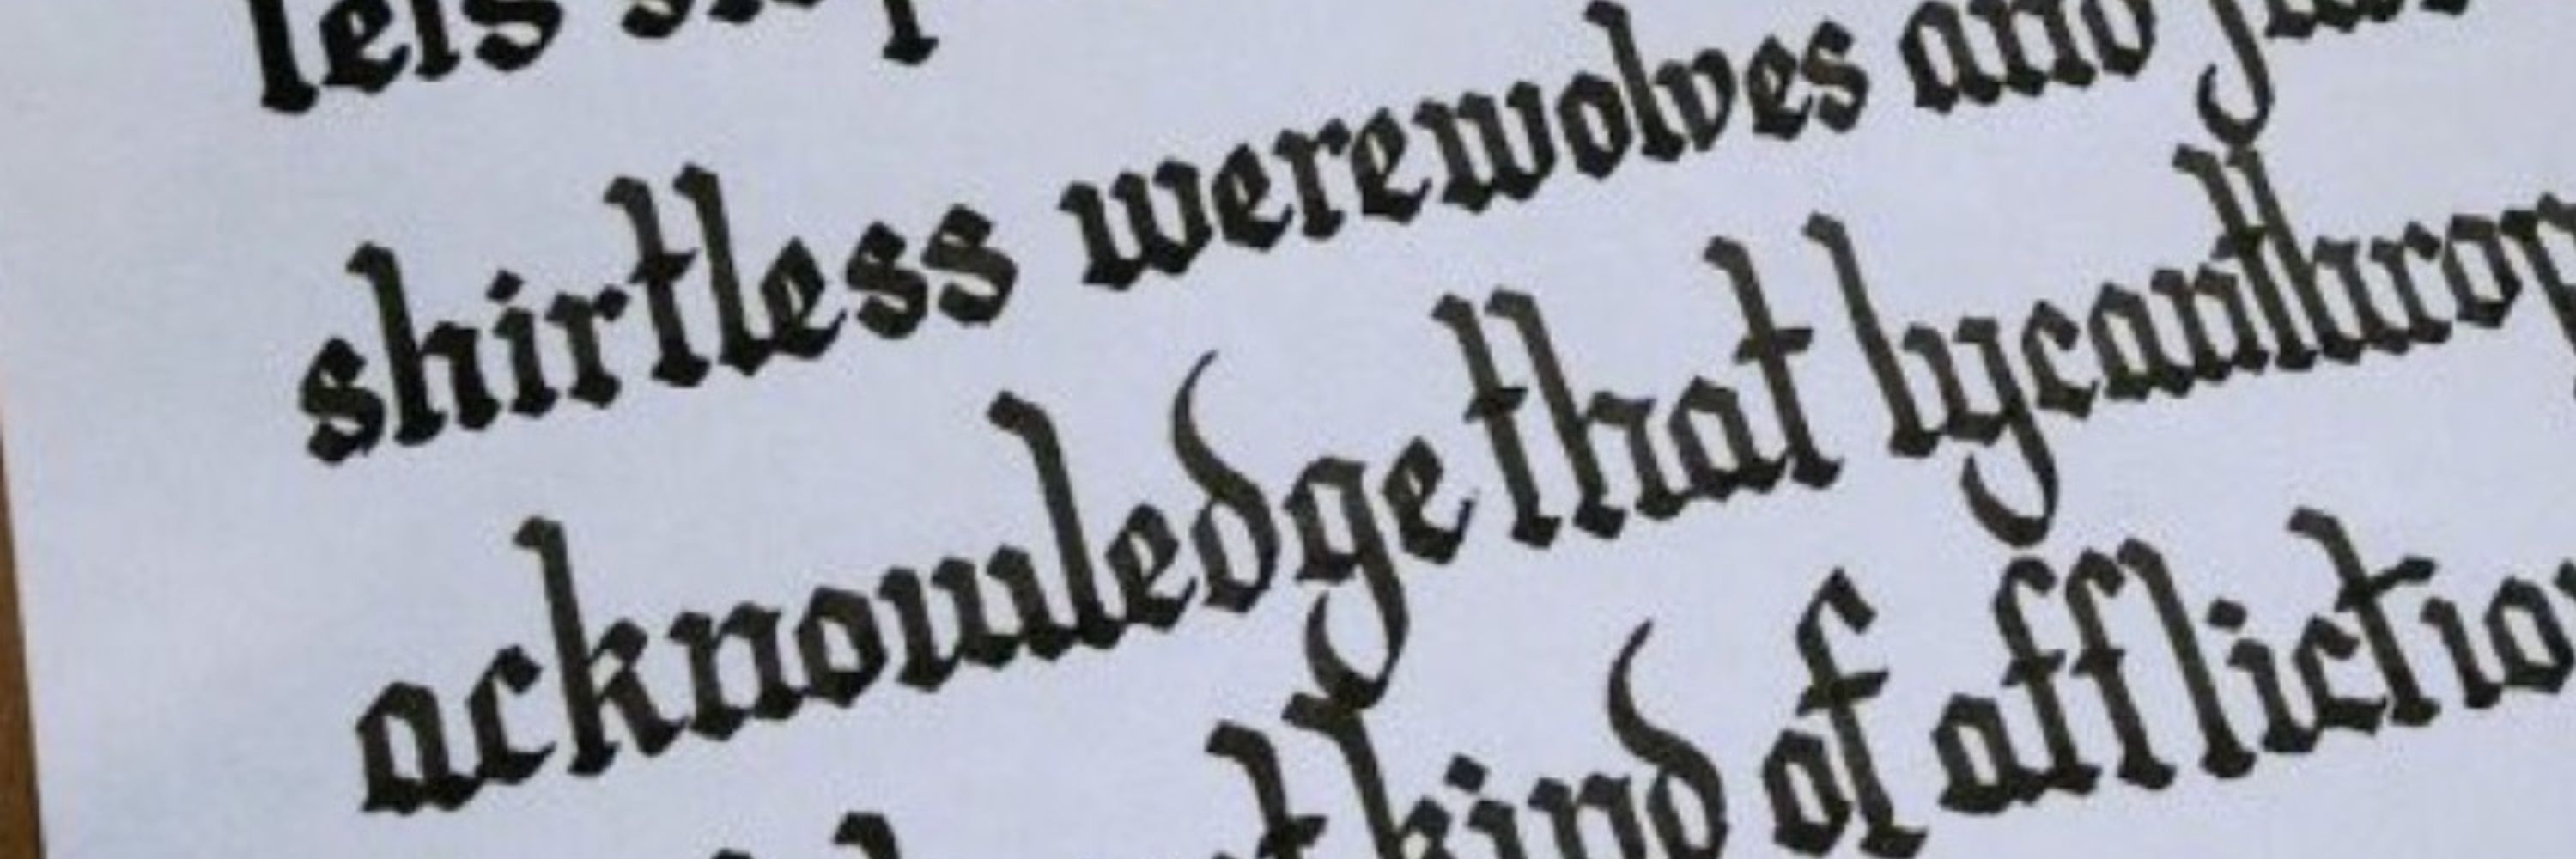 lets
shirtless werewolves and
acknowledge that lycanthrop
kind of afflictio